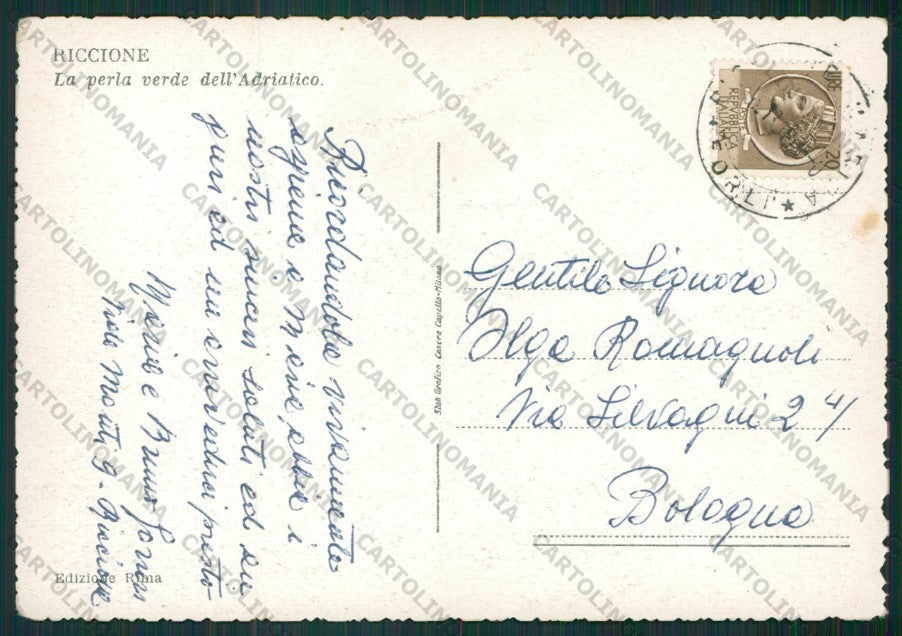 RICCIONE
La perla verde dell'Adriatico.
Ricordandola vivamente
assieme a
nostri saluti ed au
guri ed un arrivederci presto
Maria e Bruno
Viale Monti, 9 - Riccione
Edizione Rima
Stab. Grafico Cesare Capello-Milano
LIRE 20
REPVBBLICA
ITALIANA
FORLI
Gentile Signora
Olga Romagnoli
Via Silvagni 2 4/
Bologna
CARTOLINOMANIA